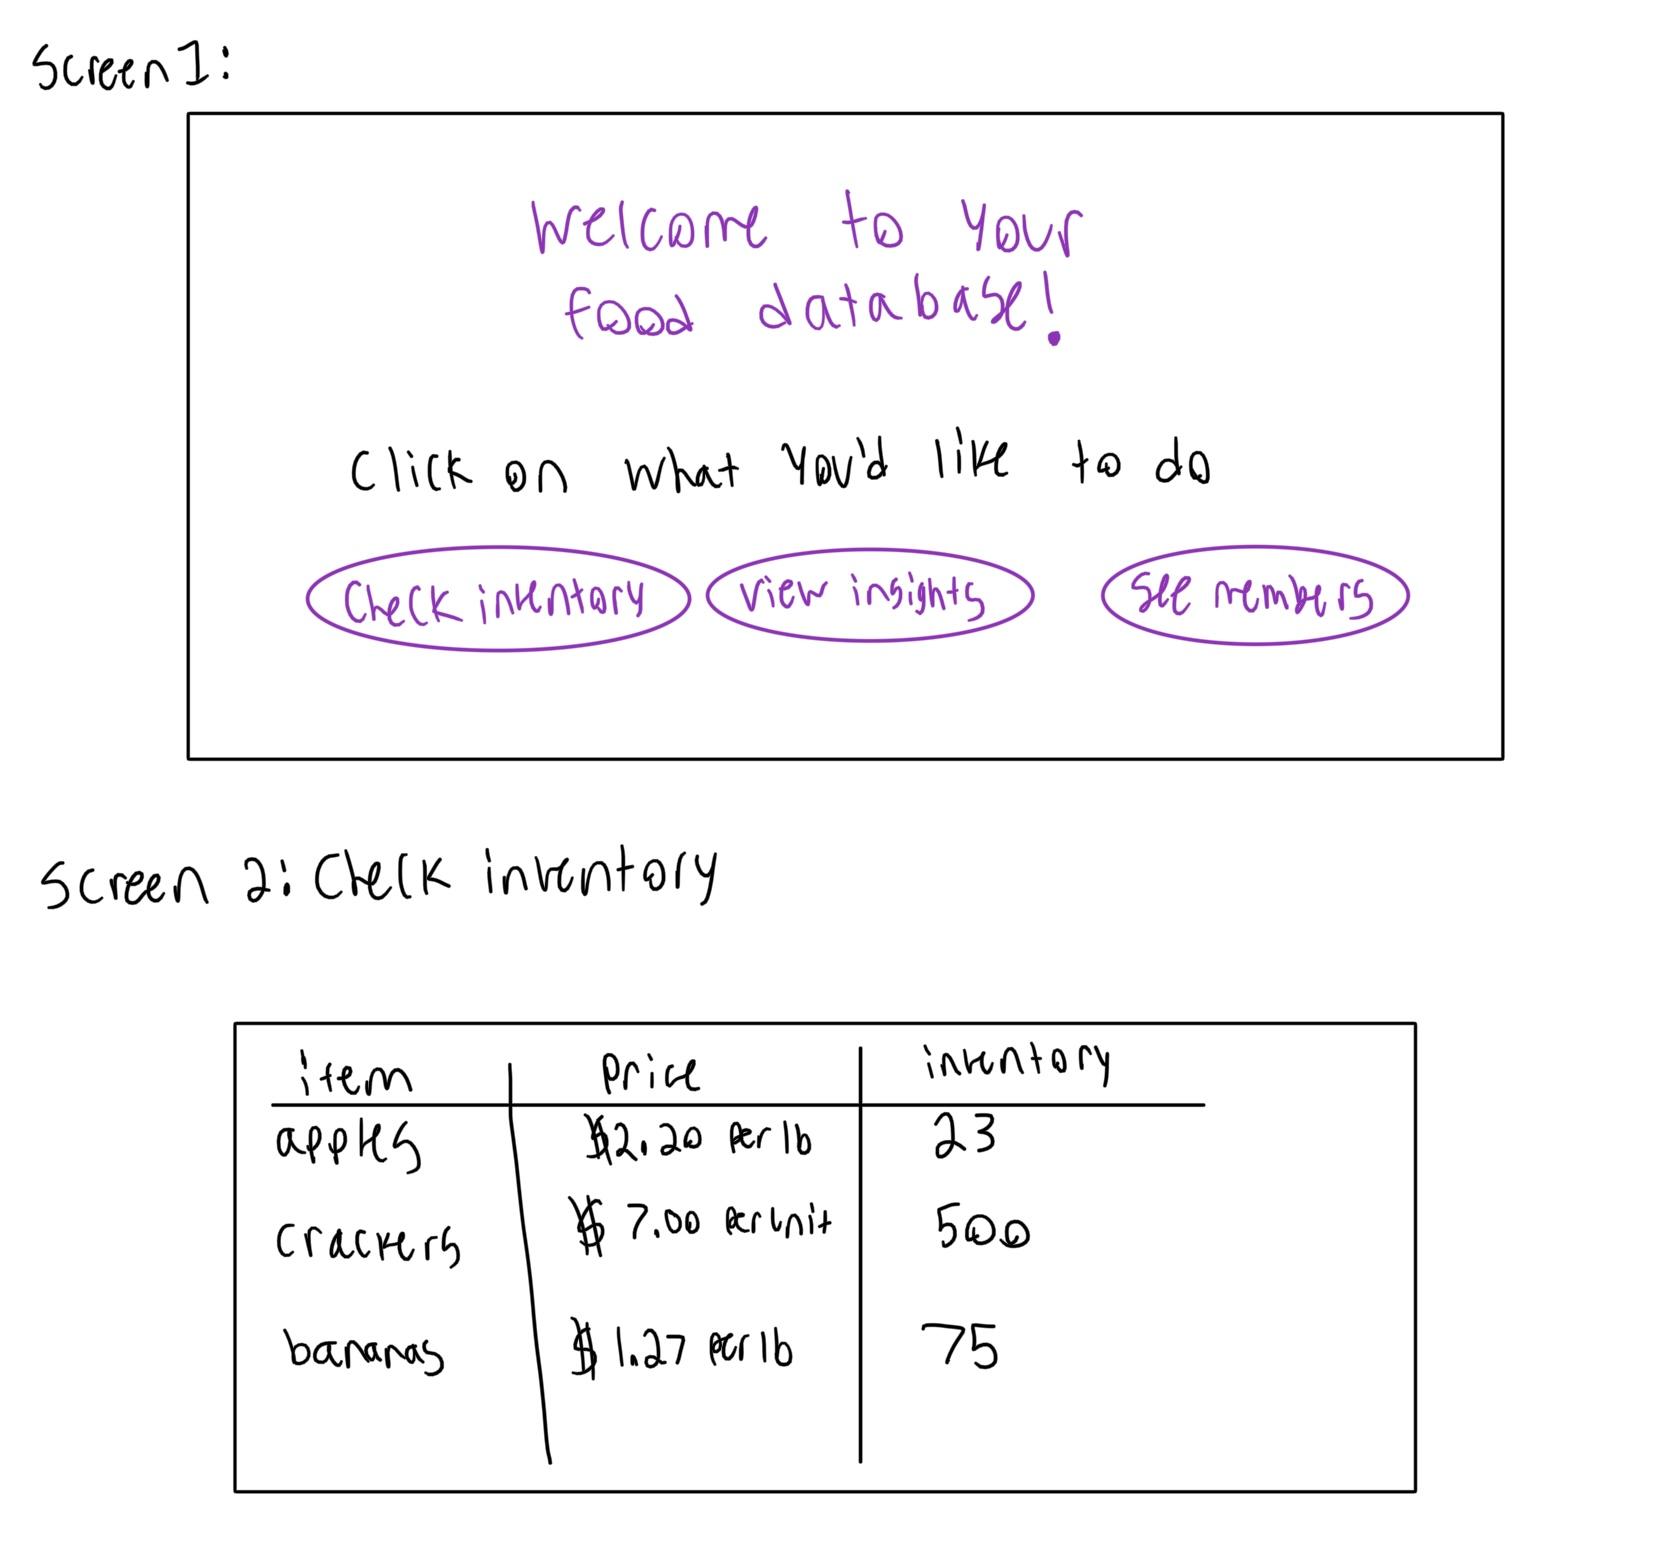 Screen 1:
Welcome to your
food database!
Click on what you'd like to do
Check inventory view insights see members
Screen 2: Check inventory
item Price inventory
apples $2.20 per lb 23
crackers $ 7.00 per unit 500
bananas $ 1.27 per lb 75